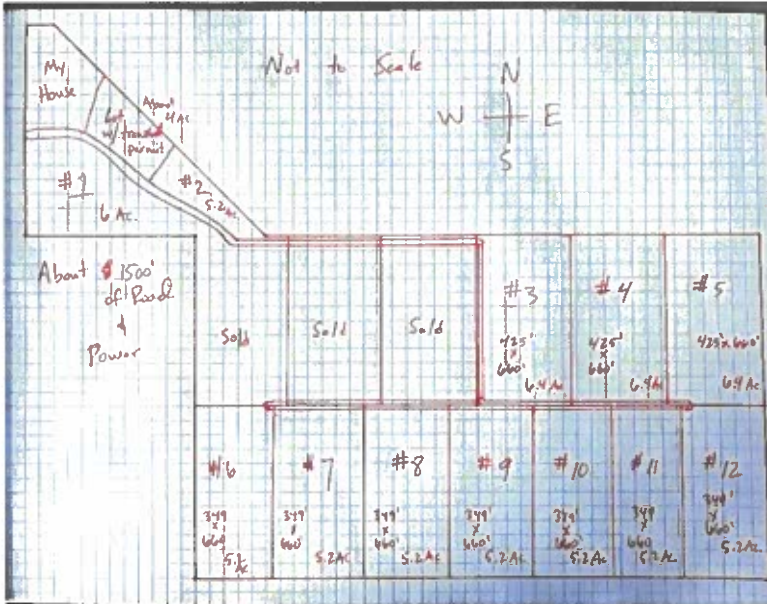 Not to Scale
N
W E
S
My
House
Lot
w/
permit
About
4 Ac
#1
6 Ac.
#2
5.2 Ac
About 1500'
of Road
&
Power
Sold
Sold
Sold
#3
425'
x
660'
6.4 Ac
#4
425'
x
660'
6.4 Ac
#5
425' x 660'
6.4 Ac
#6
349
x
660
5.2
Ac
#7
349'
x
660'
5.2 Ac
#8
349'
x
660'
5.2 Ac
#9
349'
x
660'
5.2 Ac
#10
349'
x
660'
5.2 Ac
#11
349
x
660
5.2 Ac
#12
349'
x
660'
5.2 Ac